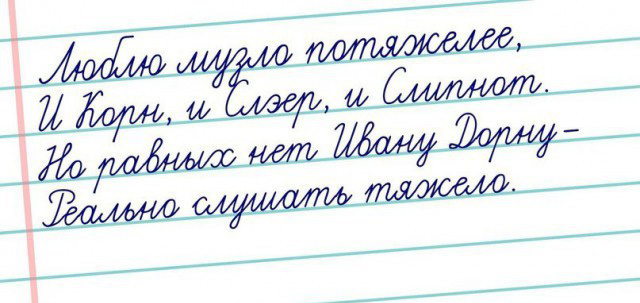 Люблю музло потяжелее,
И Корн, и Слэер, и Слипнот.
Но равных нет Ивану Дорну-
Реально слушать тяжело.